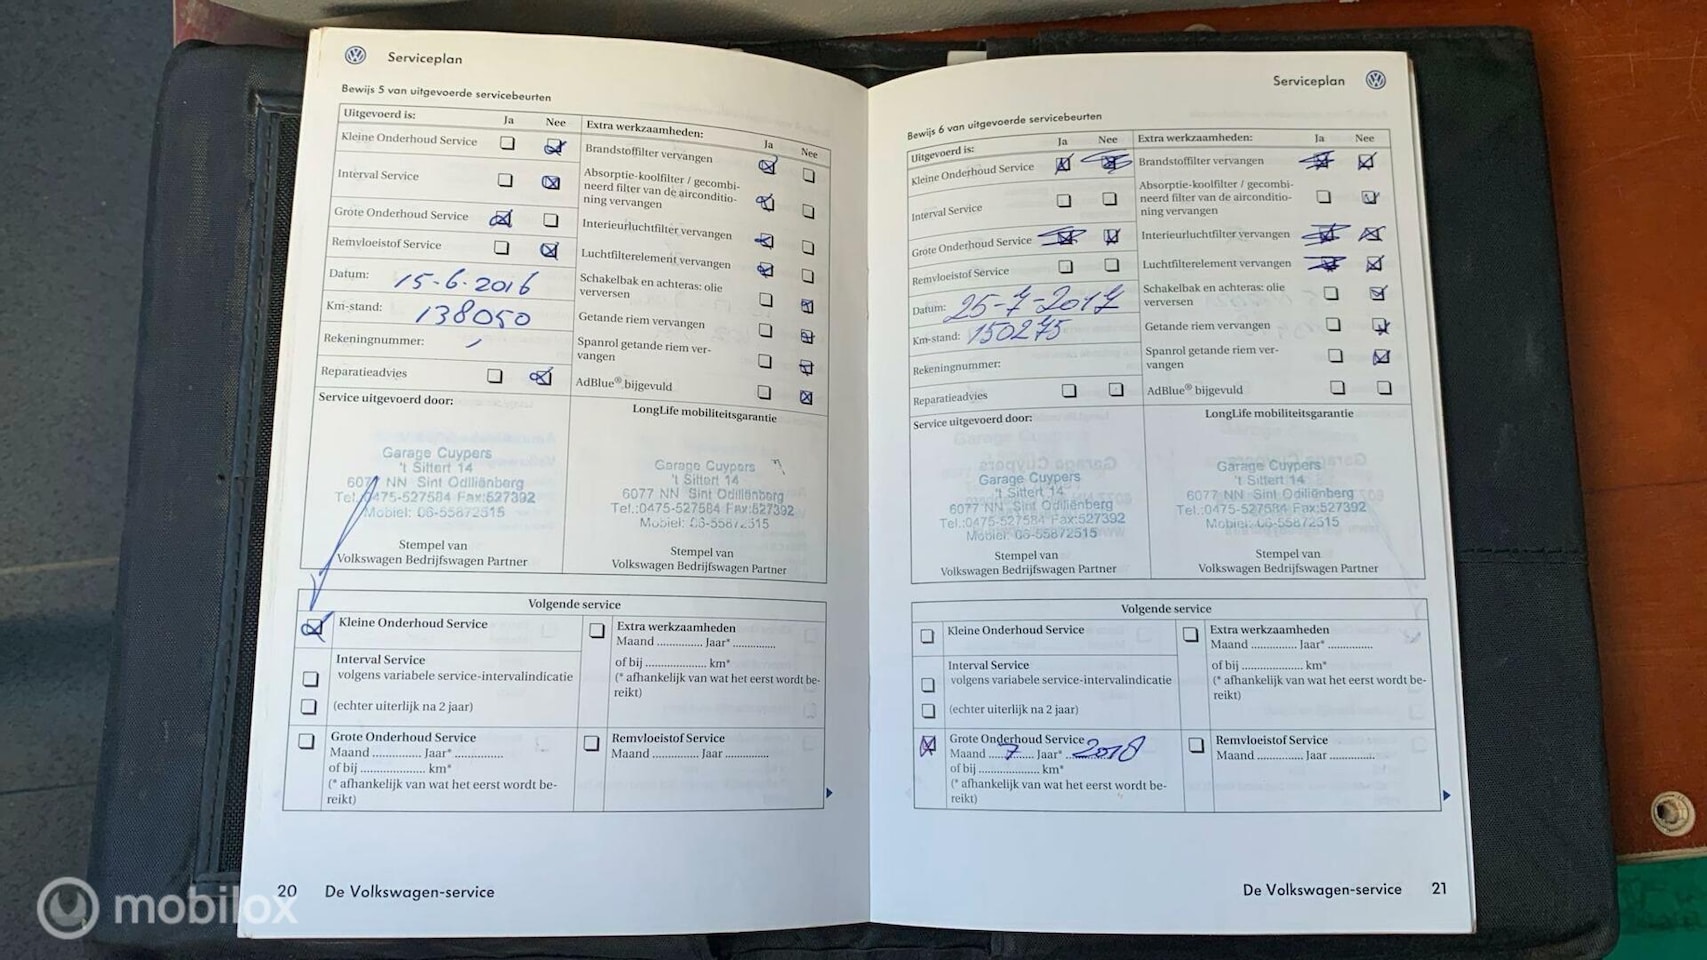 Serviceplan
Bewijs 5 van uitgevoerde servicebeurten
Uitgevoerd is:
Ja
Nee
Kleine Onderhoud Service
Interval Service
Grote Onderhoud Service
Remvloeistof Service
Datum: 15-6-2016
Km-stand: 138050
Rekeningnummer:
Reparatieadvies
Extra werkzaamheden:
Ja
Nee
Brandstoffilter vervangen
Absorptie-koolfilter / gecombi-
neerd filter van de airconditio-
ning vervangen
Interieurluchtfilter vervangen
Luchtfilterelement vervangen
Schakelbak en achteras: olie
verversen
Getande riem vervangen
Spanrol getande riem ver-
vangen
AdBlue® bijgevuld
Service uitgevoerd door:
Garage Cuypers
't Sittert 14
6077 NN Sint Odiliënberg
Tel.:0475-527584 Fax:527392
Mobiel: 06-55872515
Stempel van
Volkswagen Bedrijfswagen Partner
LongLife mobiliteitsgarantie
Garage Cuypers
't Sittert 14
6077 NN Sint Odiliënberg
Tel.:0475-527584 Fax:527392
Mobiel: 06-55872515
Stempel van
Volkswagen Bedrijfswagen Partner
Volgende service
Kleine Onderhoud Service
Interval Service
volgens variabele service-intervalindicatie
(echter uiterlijk na 2 jaar)
Grote Onderhoud Service
Maand .............. Jaar* ..............
of bij ................... km*
(* afhankelijk van wat het eerst wordt be-
reikt)
Extra werkzaamheden
Maand .............. Jaar* .............
of bij ................... km*
(* afhankelijk van wat het eerst wordt be-
reikt)
Remvloeistof Service
Maand .............. Jaar .............
20 De Volkswagen-service
Serviceplan
Bewijs 6 van uitgevoerde servicebeurten
Uitgevoerd is:
Ja
Nee
Kleine Onderhoud Service
Interval Service
Grote Onderhoud Service
Remvloeistof Service
Datum: 25-7-2017
Km-stand: 150275
Rekeningnummer:
Reparatieadvies
Extra werkzaamheden:
Ja
Nee
Brandstoffilter vervangen
Absorptie-koolfilter / gecombi-
neerd filter van de airconditio-
ning vervangen
Interieurluchtfilter vervangen
Luchtfilterelement vervangen
Schakelbak en achteras: olie
verversen
Getande riem vervangen
Spanrol getande riem ver-
vangen
AdBlue® bijgevuld
Service uitgevoerd door:
Garage Cuypers
't Sittert 14
6077 NN Sint Odiliënberg
Tel.:0475-527584 Fax:527392
Mobiel: 06-55872515
Stempel van
Volkswagen Bedrijfswagen Partner
LongLife mobiliteitsgarantie
Garage Cuypers
't Sittert 14
6077 NN Sint Odiliënberg
Tel.:0475-527584 Fax:527392
Mobiel: 06-55872515
Stempel van
Volkswagen Bedrijfswagen Partner
Volgende service
Kleine Onderhoud Service
Interval Service
volgens variabele service-intervalindicatie
(echter uiterlijk na 2 jaar)
Grote Onderhoud Service
Maand ....7.... Jaar* ..2018
of bij ................... km*
(* afhankelijk van wat het eerst wordt be-
reikt)
Extra werkzaamheden
Maand .............. Jaar* .............
of bij ................... km*
(* afhankelijk van wat het eerst wordt be-
reikt)
Remvloeistof Service
Maand .............. Jaar ..............
De Volkswagen-service 21
mobilox